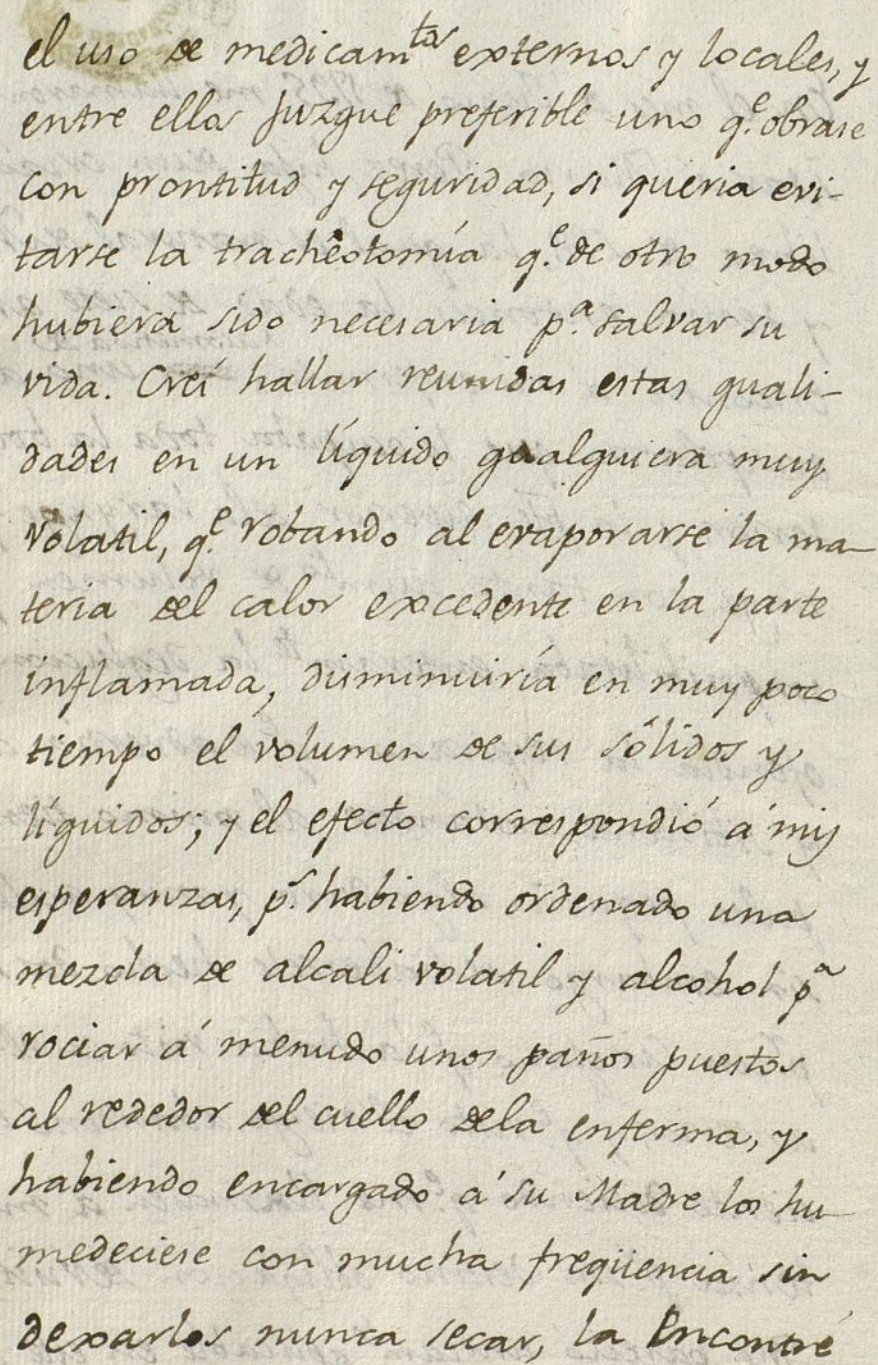 el uso de medicam.tos externos y locales, y
entre ellos juzgue preferible uno q.e obrase
con prontitud y seguridad, si queria evi-
tarse la trachêotomía q.e de otro modo
hubiera sido necesaria p.a salvar su
vida. Creí hallar reunidas estas quali-
dades en un líquido qualquiera muy
volatil, q.e robando al evaporarse la ma-
teria del calor excedente en la parte
inflamada, disminuiría en muy poco
tiempo el volumen de sus sólidos y
líquidos; y el efecto correspondió á mis
esperanzas, p.s habiendo ordenado una
mezcla de alcali volatil y alcohol p.a
rociar á menudo unos paños puestos
al rededor del cuello dela enferma, y
habiendo encargado á su Madre los hu-
medeciese con mucha freqüencia sin
dexarlos nunca secar, la encontré